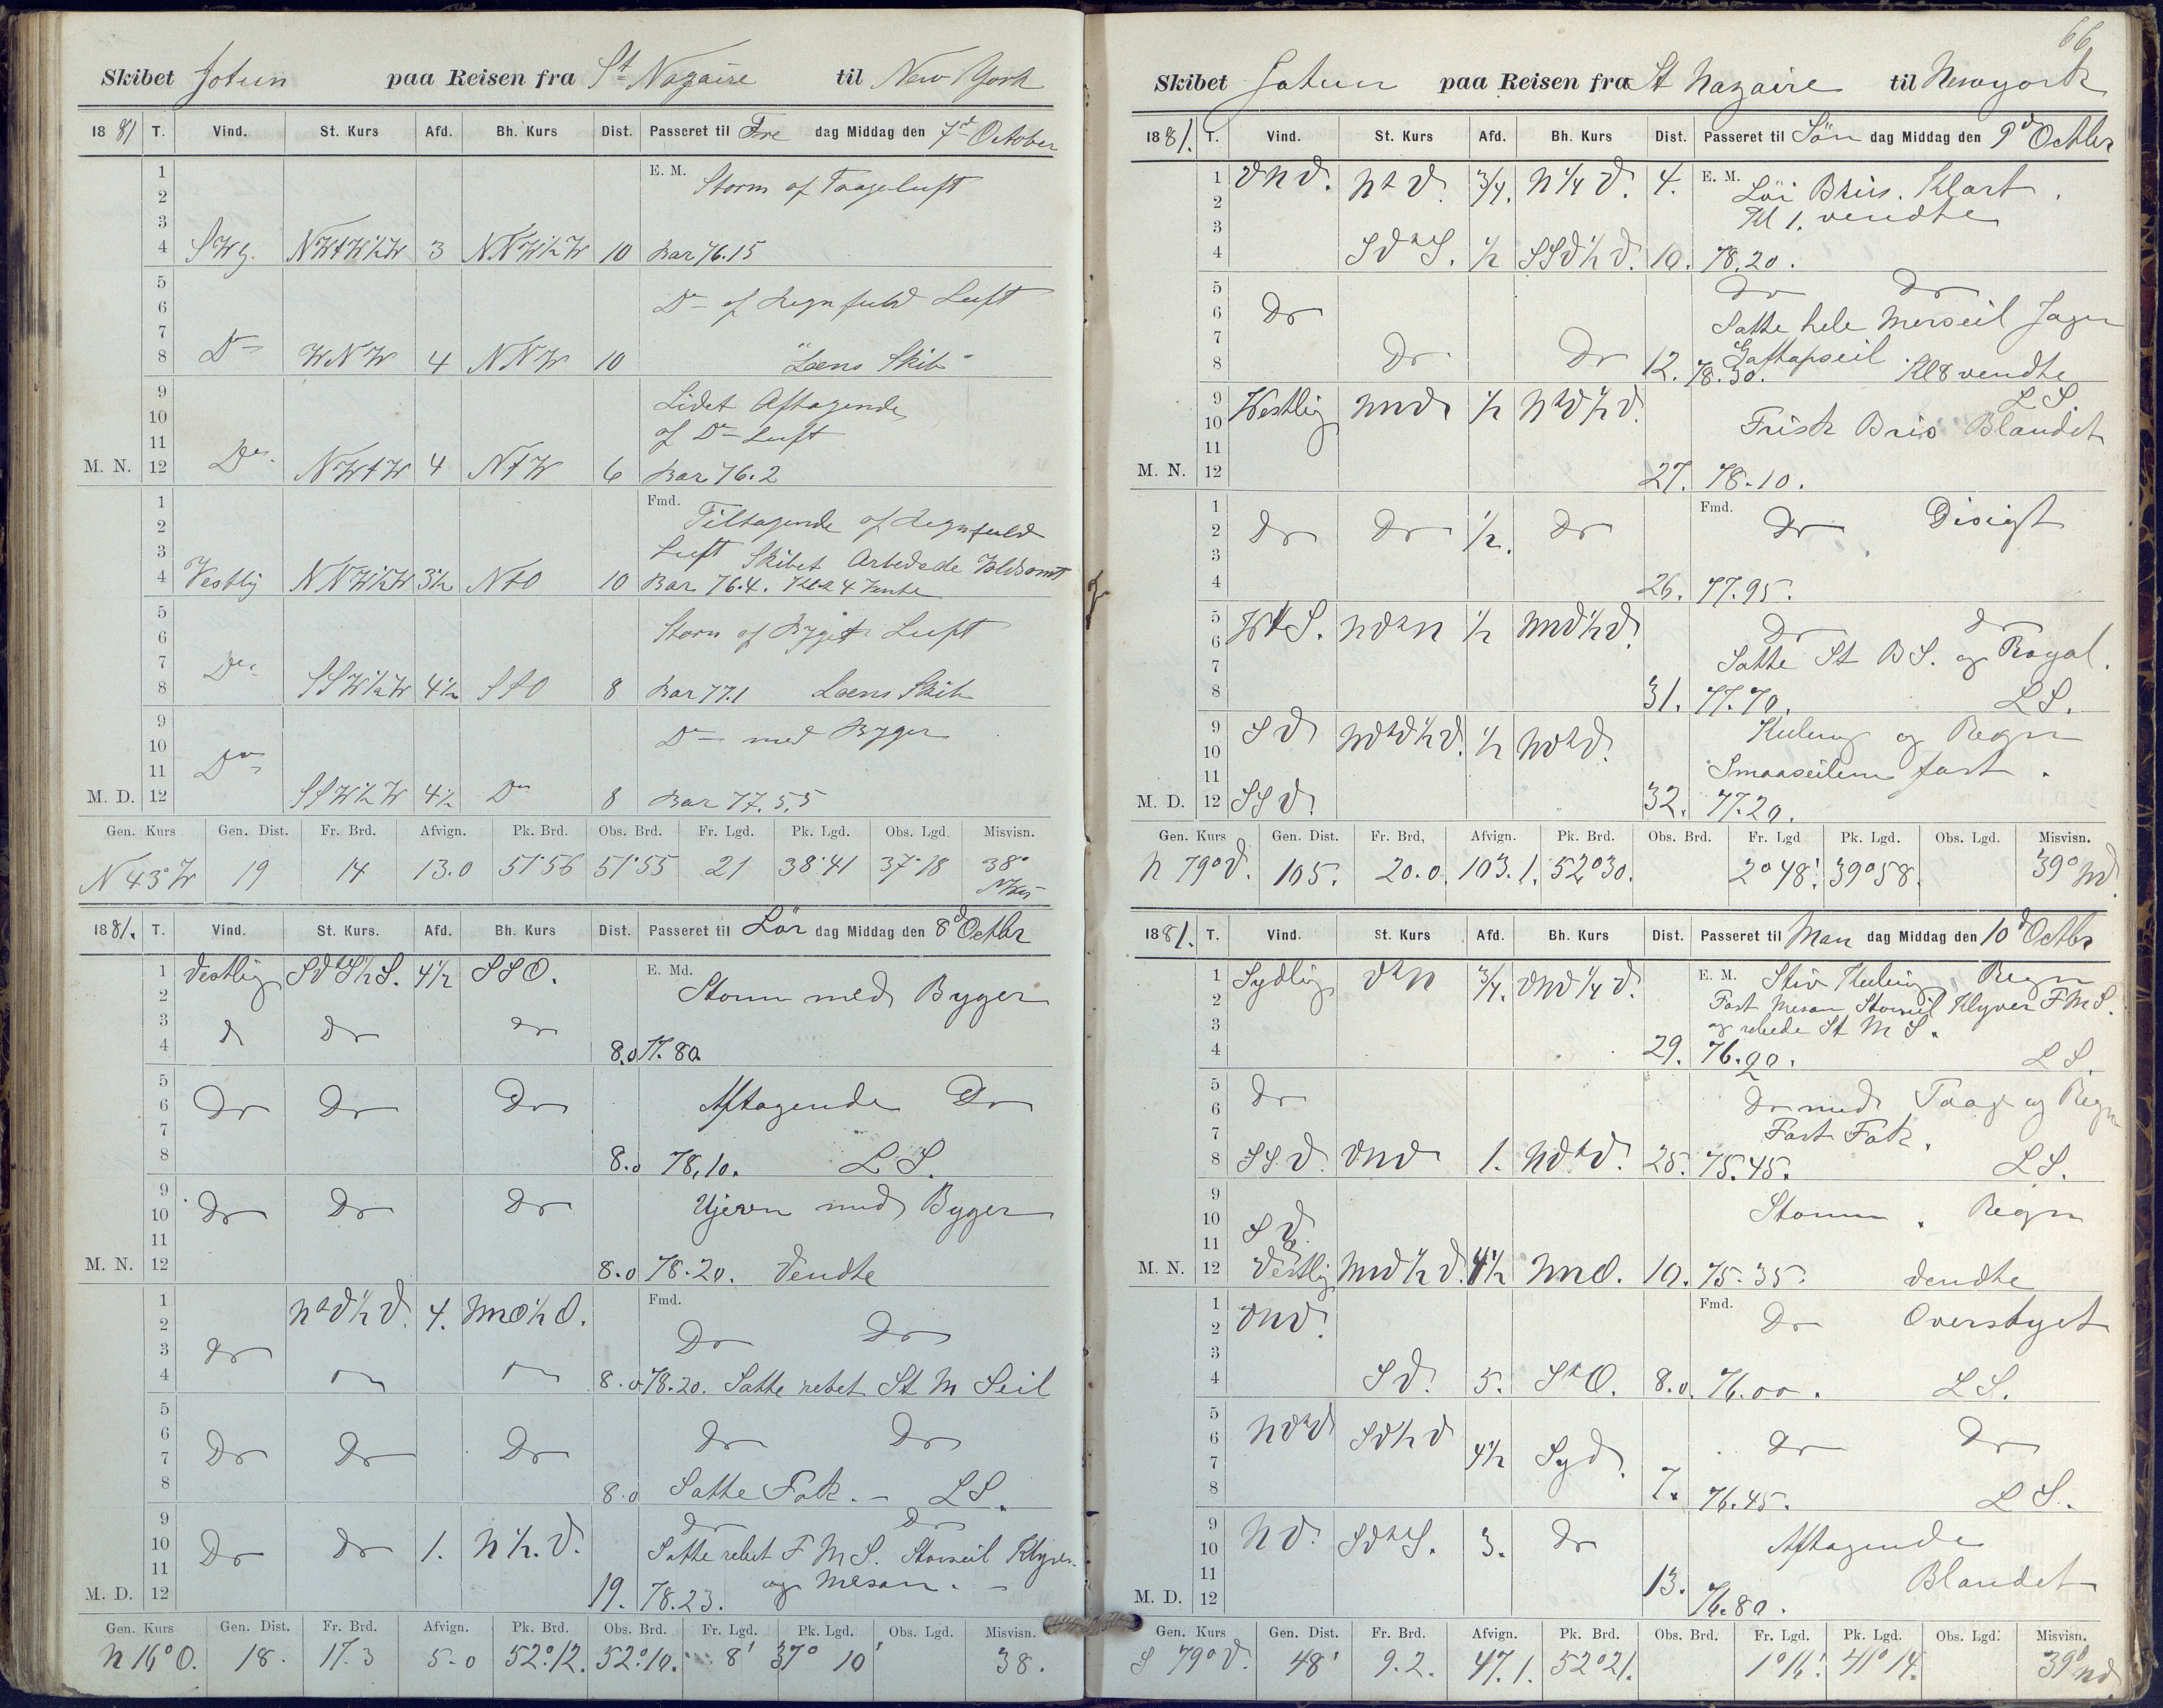 Skibet Jotun paa Reisen fra St Nazaire til New York
1881 T. Vind. St. Kurs Afd. Bh. Kurs Dist. Passeret til Fre dag Middag den 7de October
1 E. M. Storm af Taageluft
2
3
4 SWg. NWtW½W 3 NNW½W 10 Bar 76.15
5 Do af Regnfuld Luft
6
7
8 Do WNW 4 NNW 10 "Læns Skib"
9 Lidet Aftagende
10 af Do Luft
11
M. N. 12 Do NWtW 4 NtW 6 Bar 76.2
1 Fmd. Tiltagende af Regnfuld
2 Luft Skibet Arbedede Voldsomt
3
4 Vestlig NNW½W 3½ NtO 10 Bar. 76.4. Kl 4 Vendte
5 Storm af Byget Luft
6
7
8 Do SSW½W 4½ SSO 8 Bar 77.1 Læns Skib
9 Do med Byger
10
11
M. D. 12 Do SSW½W 4½ Do 8 Bar 77.5,5
Gen. Kurs Gen. Dist. Fr. Brd. Afvign. Pk. Brd. Obs. Brd. Fr. Lgd. Pk. Lgd. Obs. Lgd. Misvisn.
N 43° W 19 14 13.0 51°56 51°55 21 38°41 37°18 38°
1881. T. Vind. St. Kurs. Afd. Bh. Kurs Dist. Passeret til Lör dag Middag den 8d Octbr
1 Vestlig SVtS½S. 4½ SSO. E. Md. Storm med Byger
2
3 d Dr Dr
4 8.0 77.80.
5 Aftagende Dr
6 Dr Dr Dr
7
8 8.0 78,10. LS.
9 Ujevn med Byger
10 Dr Dr Dr
11
M. N. 12 8.0 78.20. Vendte
1 NtV½V. 4. NNO½O. Fmd.
2 Dr Dr
3 Dr
4 8.0 78.20. Satte rebet St M Seil
5
6 Dr Dr
7 Dr Dr Dr
8 8.0 Satte Fok. – LS.
9 Dr Dr
10 Dr Dr 1. N½.V. Satte rebet F M S. Storseil Klyver
11 og Mesan. –
M. D. 12 19. 78.23.
Gen. Kurs Gen. Dist. Fr. Brd. Afvign. Pk. Brd. Obs. Brd. Fr. Lgd. Pk. Lgd. Obs. Lgd. Misvisn.
N 16° O. 18. 17.3 5.0 52°.12. 52°.10. 8' 37° 10' 38.
66
Skibet Jotun paa Reisen fra St Nazaire til Newyork
1881. T. Vind. St. Kurs Afd. Bh. Kurs Dist. Passeret til Sön dag Middag den 9d Octbr
1 VNV. NtV. ¾. N¼V. 4. E. M. Löi Bris. Klart.
2 Kl 1. vendte
3
4 SVtS. ½ SSV½V. 10. 78.20.
5 Dr Dr
6 Dr Satte hele Merseil Jager
7 Gaftapseil
8 Dr Dr 12. 78.30. Kl 8 vendte
9 Westlig NNV ½ NtV½V. LS
10 Frisk Bris Blandet
11
M. N. 12 27. 78.10.
1 Fmd. Dr Disigt
2 Dr Dr ½. Dr
3
4 26. 77.95.
5 WtS. NVtN ½ NNV½V. Dr Dr
6 Satte St B S. og Royal.
7
8 31. 77.70. LS.
9 SV NVtV½V. ½ NVtV. Kuling og Regn
10
11 Smaaseilene fast.
M. D. 12 SSV. 32. 77.20.
Gen. Kurs Gen. Dist. Fr. Brd, Afvign. Pk. Brd. Obs. Brd. Fr. Lgd Pk. Lgd. Obs. Lgd. Misvisn.
N 79° V. 105. 20.0. 103.1. 52°30. 2°48'. 39°58. 39° NV.
1881. T. Vind. St. Kurs Afd. Bh. Kurs Dist. Passeret til Man dag Middag den 10d Octbr
1 Sydlig VtN ¾. VNV¼V. E. M. Stiv Kuling Regn
2 Fast Mesan Storseil Klyver F M S.
3 og rebede St M S.
4 29. 76.90. LS.
5 Dr Dr med Taage og Regn
6
7 Fast Fok.
8 SSV. VNV 1. NVtV. 25. 75.45. LS.
9 Storm. Regn
10 SV.
11
M. N. 12 Vestlig NNV½V. 4½ NNO. 10. 75.35. Vendte
1 VNV. Fmd. Dr Overskyet
2
3
4 SV. 5. StO. 8.0. 76.00. LS.
5
6 NVtV SV½V Dr Dr
7 4½ Syd.
8 7. 76.45. LS.
9 NV. SVtS. 3. Dr Aftagende
10
11 Blandet
M. D. 12 13. 76.80.
Gen. Kurs Gen. Dist. Fr. Brd. Afvign. Pk. Brd. Obs. Brd. Fr. Lgd. Pk. Lgd. Obs. Lgd. Misvisn.
S 79° V. 48' 9.2. 47.1. 52°21. 1°16'. 41° 14. 39° NV